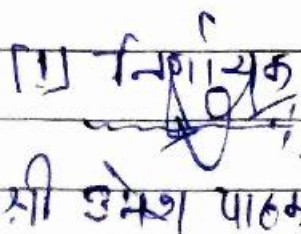 [1] निर्णायक
श्री उमेश पाठक